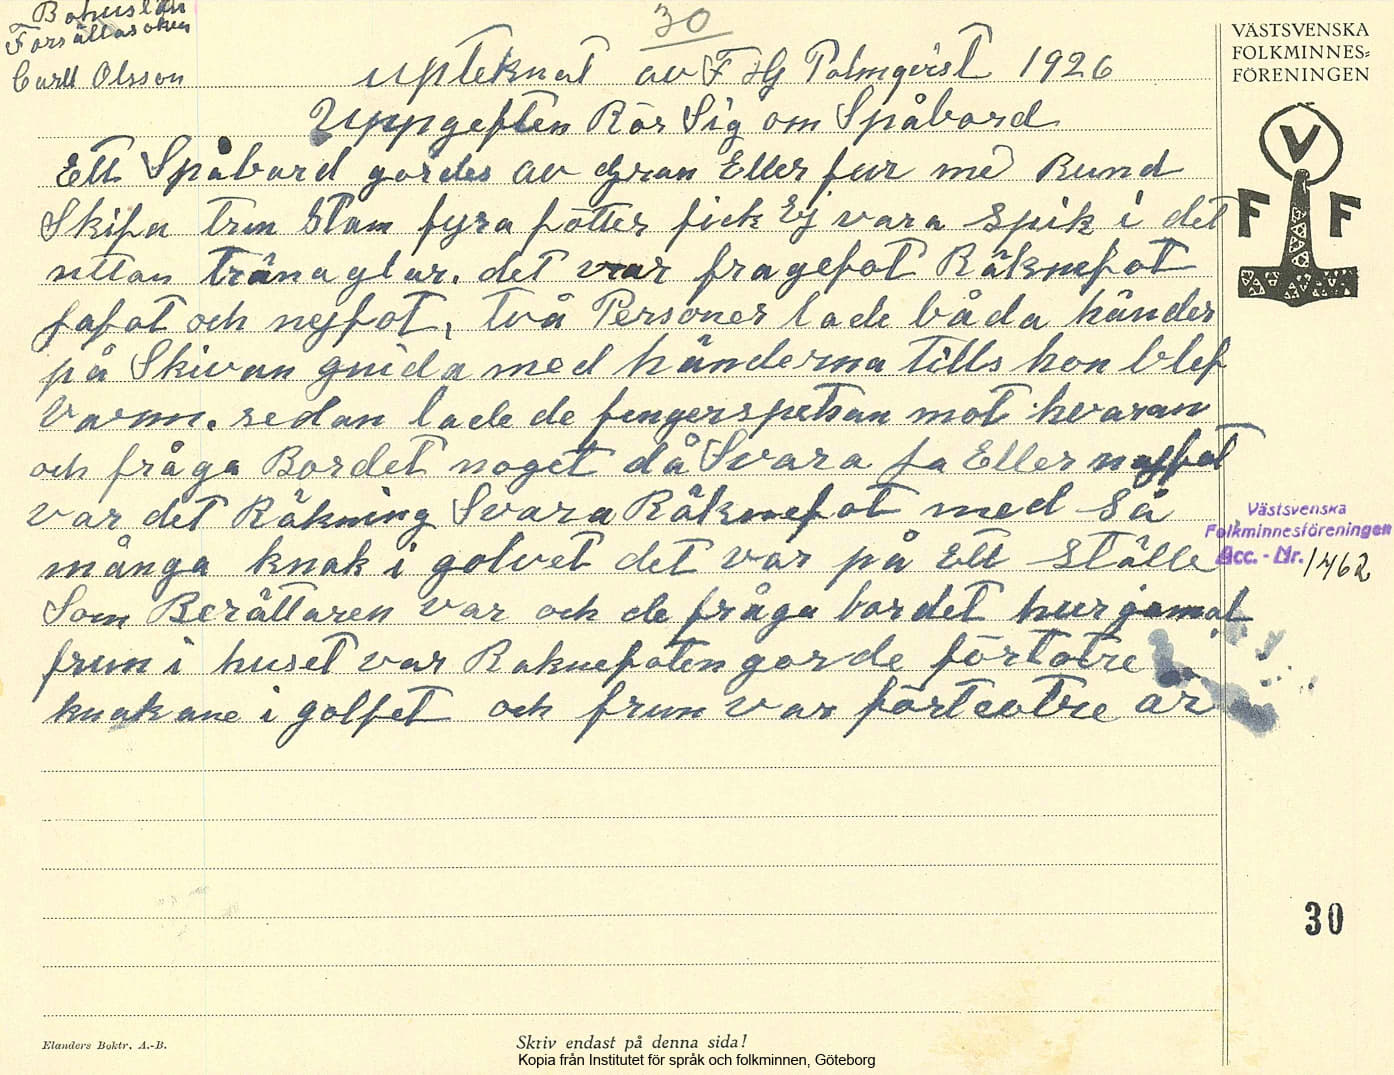 Bohuslän
Forsällasoken
Carll Olsson
30
upteknat av F Hg Palmqvist 1926
Uppgeften Rör Sig om Spåbord
Ett Spåbord gordes av Gran Eller fur med Rund
Skifa trm Stam fyra fötter fick Ej vara spik i det
uttan tränaglar. det var fragefot Räknefot
jafot och nejfot, två Personer lade båda händer
på Skivan gnida med händerna tills hon blef
Varm. sedan lade de fengerspetsan mot hvaran
och fråga Bordet noget då Svara ja Eller nejfot
var det Räkning Svara Räknefot med Så
många knak i golvet det var på Ett Ställe
Som Berättaren var och de fråga bordet hur gamal
frun i huset var Raknefoten gorde förtotre
knakane i golfet och frun var förteotre år
VÄSTSVENSKA
FOLKMINNES=
FÖRENINGEN
V
F F
Västsvenska
Folkminnesföreningen
Acc. - Nr. 1462
30
Elanders Boktr. A.-B.
Skriv endast på denna sida!
Kopia från Institutet för språk och folkminnen, Göteborg